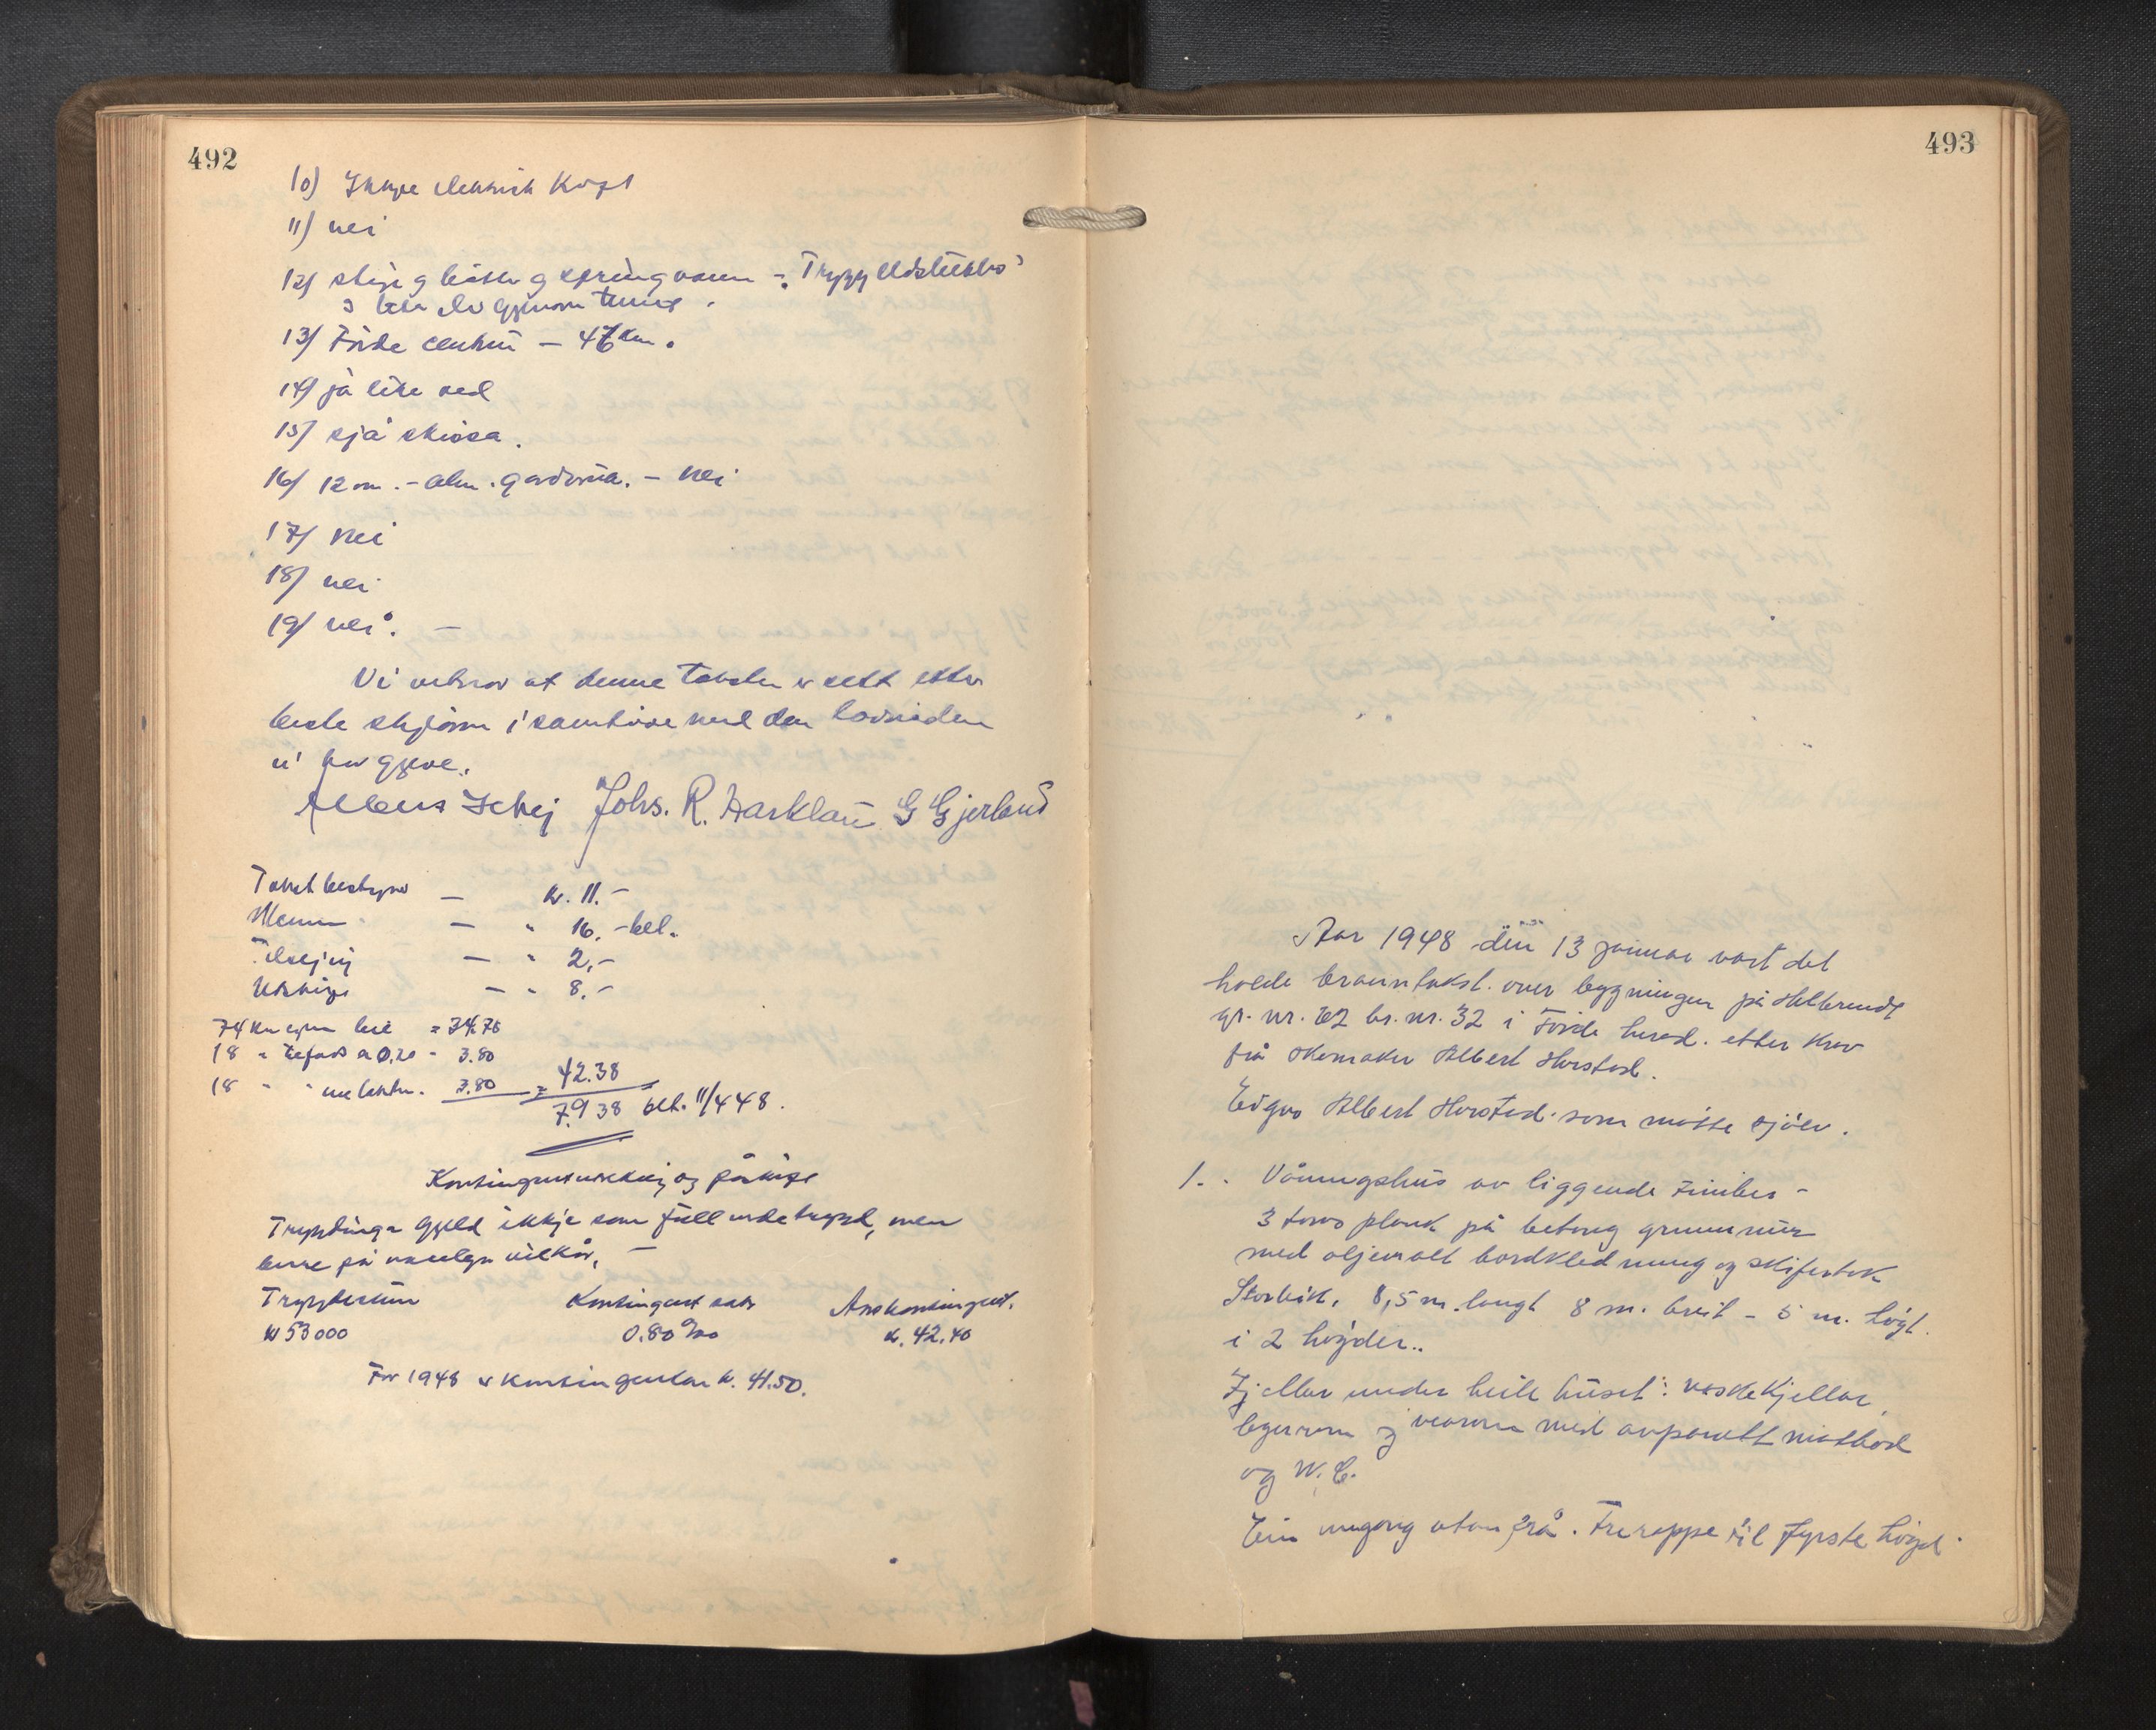 492
10)
11) nei
12) stige g bøtter g springvann -
13) Førde centrum - 47 km.
14) ja like ved
15) sjå skissa.
16) 12 m. - alm. gardsma. - nei
17) nei
18) nei
19) nei. -
Vi vitnar at denne taksten er sett etter
beste skjønn i samhøve med den lovnaden
vi har gjeve.
Johs. R. Harklau G Gjerland
Takstbestyrar - kr. 11.-
Menn - " 16.- bet.
- " 2,-
Utskrift - - " 8.-
74 km eigen bil = 34.78
18 " a 0.20 - 3.80
18 " " 3.80 = 42.38
79 38 bet. 11/4 48.
Kontingentutrekning og påskrift
Trygdinga gjeld ikkje som full vedetrygd, men
berre på vanlege vilkår. -
Trygdesum Kontingent sats Årskontingent.
kr 53000 0.80 ‰ kr. 42.40
For 1948 er kontingenten kr. 41.50.
493
Aar 1948 den 13 januar vart det
halde branntakst over bygningen på Halbrend
gr. nr. 62 br. nr. 32 i Førde herad. etter krav
frå skomaker Albert Horstad.
Eigar Albert Horstad som møtte sjølv.
1. Våningshus av liggende timber -
3 toms plank på betong grunnmur
med oljemalt bordkledning og skifertak
Storleik, 8,5 m. langt 8 m. breit - 5 m. høgt.
i 2 høgder..
Kjellar under heile huset: vaskekjellar,
og med matbod
og W.C.
Ein inngang utan frå. Tretrappe til fyrste høgd.